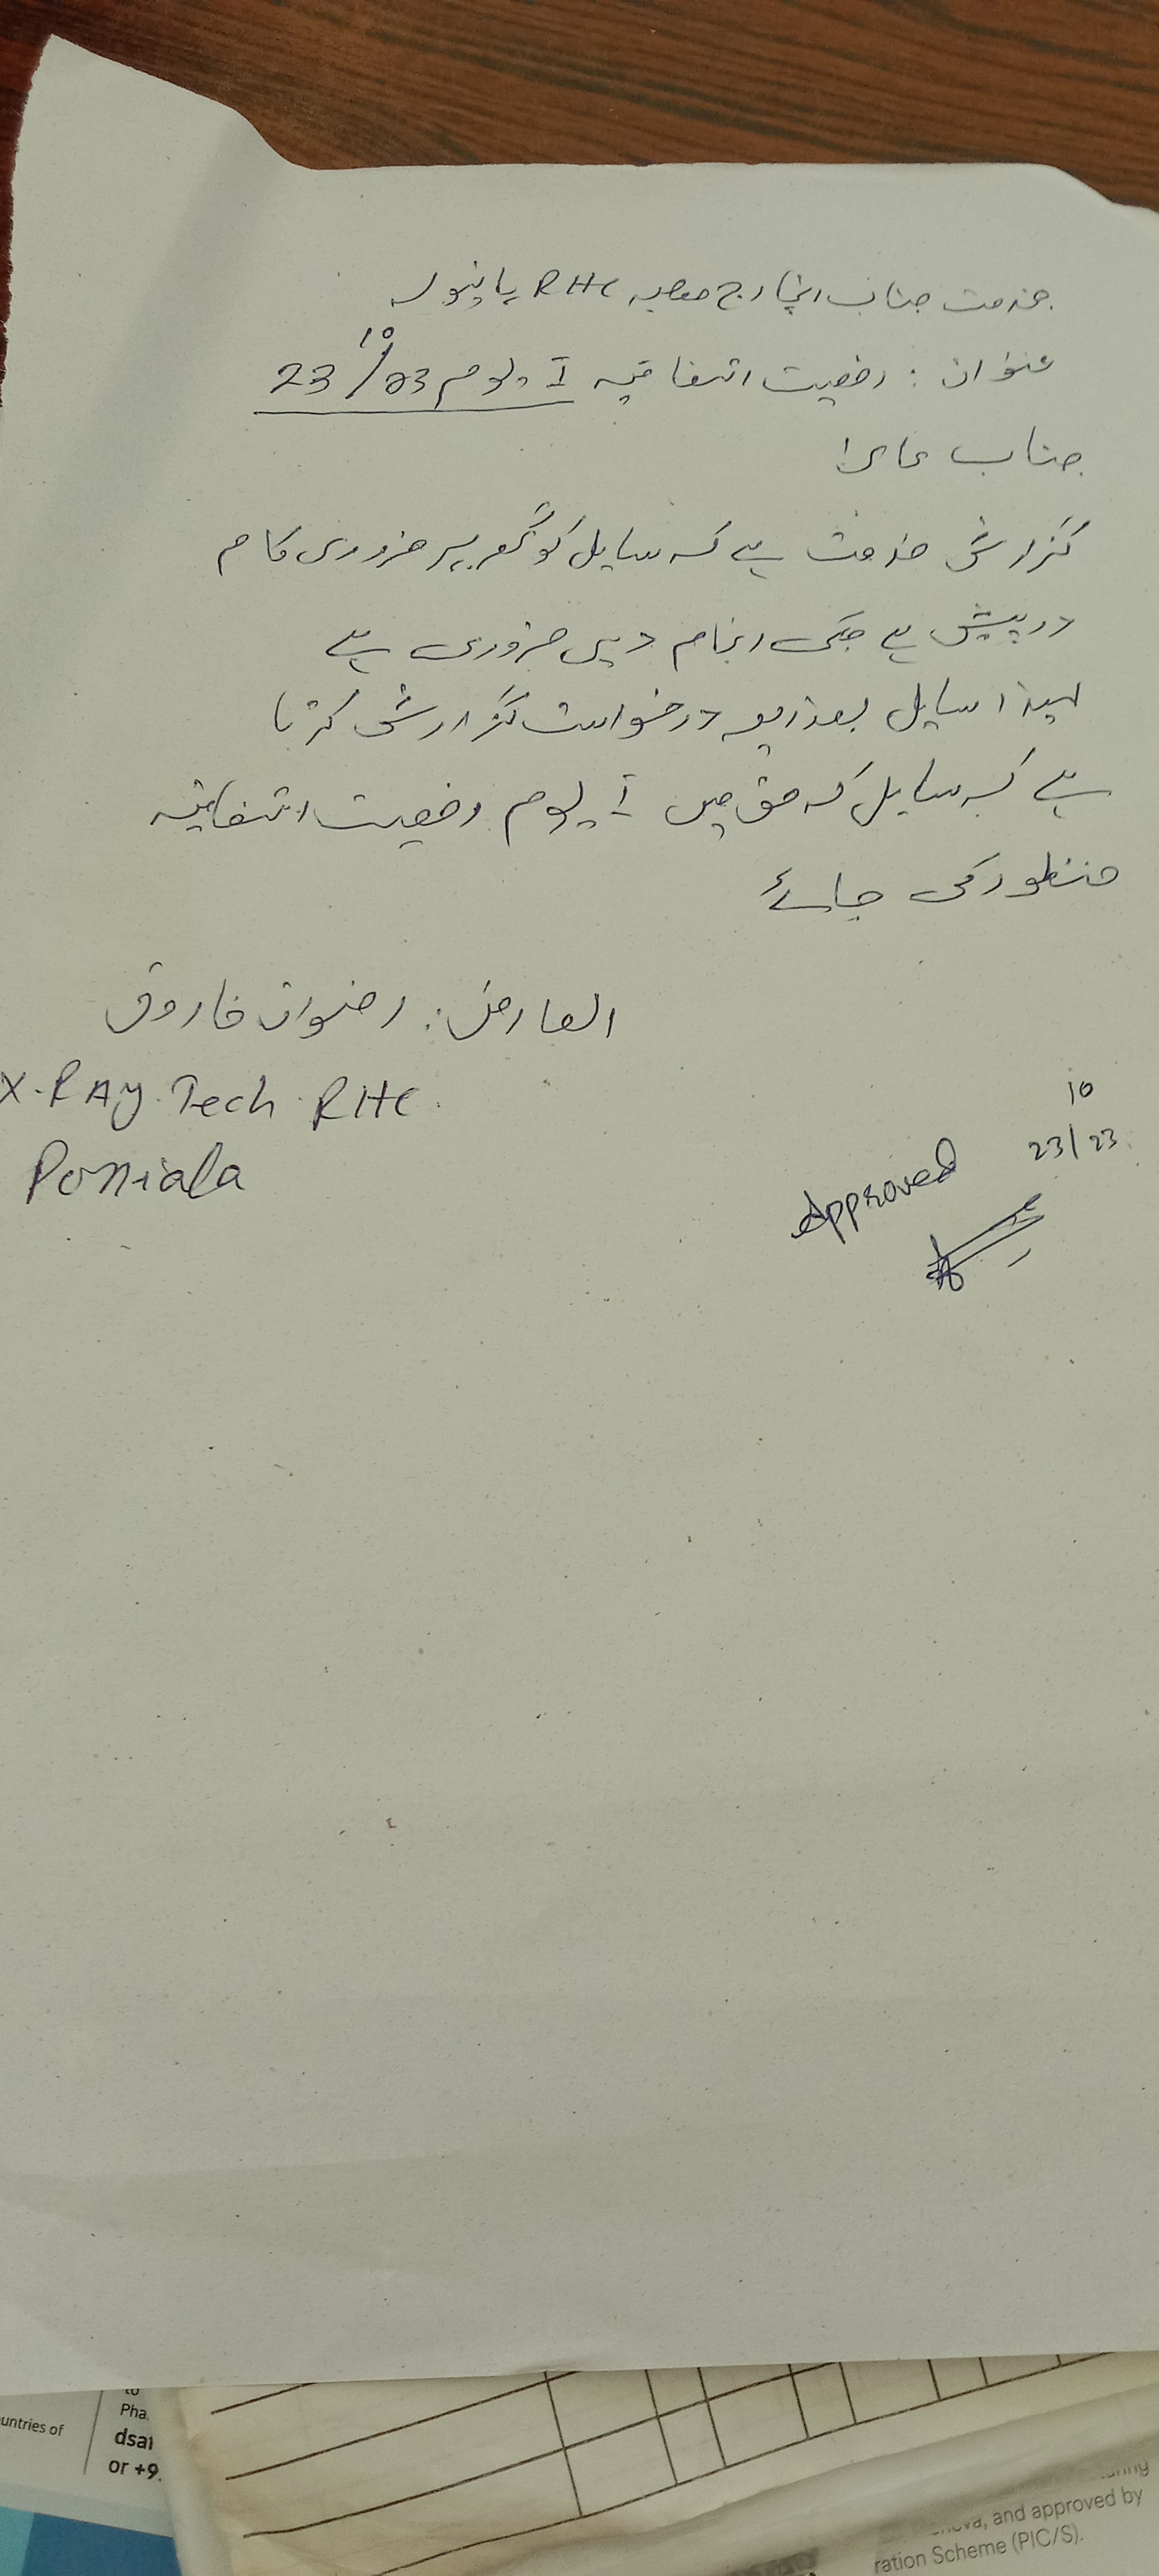 بخدمت جناب انچارج صاحب RHC پاپنولہ
عنوان : رخصت اتفاقیہ 1 یوم 23/10/23
جناب عالی!
گزارش خدمت ہے کہ سایل کو گھر پر ضروری کام
درپیش ہے جسکی انجام دہی ضروری ہے
لہذا سایل بعذریعہ درخواست گزارش کرتا
ہے کہ سایل کہ حق میں 1 یوم رخصت اتفاقیہ
منظور کی جائے
العارض: رضوان فاروق
X-RAy Tech RHC
Poniala
Approved 23/10/23
untries of
Pha
dsar
or +9.
, and approved by
ration Scheme (PIC/S).